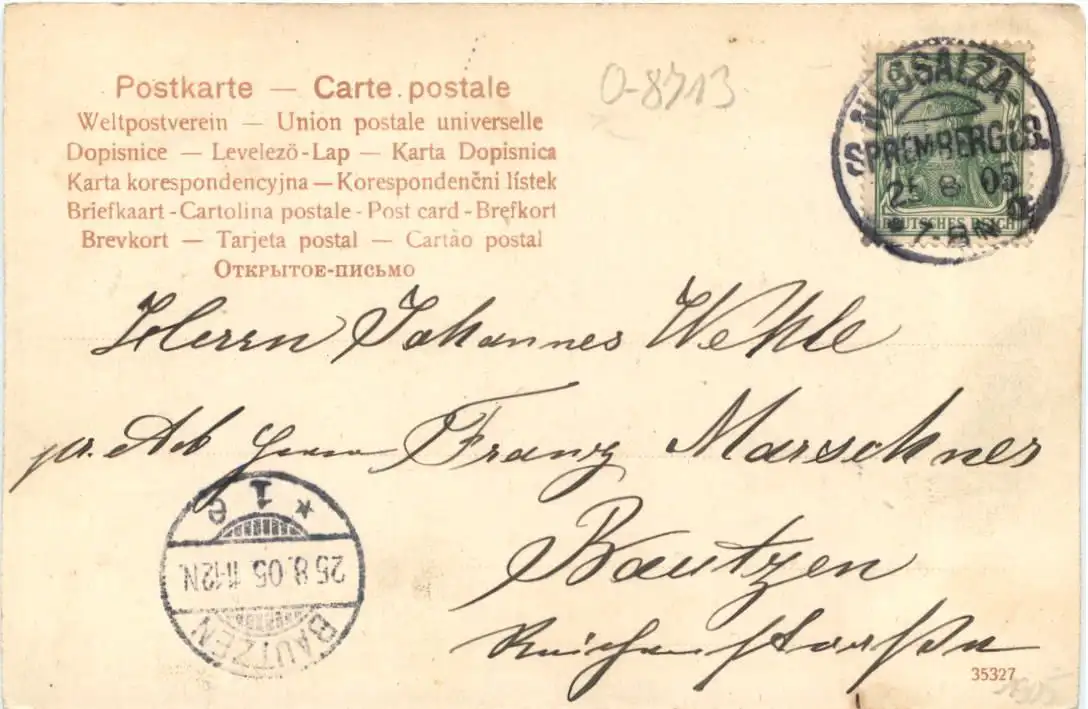 Postkarte — Carte postale
Weltpostverein — Union postale universelle
Dopisnice — Levelező-Lap — Karta Dopisnica
Karta korespondencyjna — Korespondenčni lístek
Briefkaart - Cartolina postale - Post card - Brefkort
Brevkort — Tarjeta postal — Cartão postal
Открытое-письмо
O-8713
NEUSALZA-
SPREMBERG i. S.
25 8 05
DEUTSCHES REICH
Herrn Johannes Wehle
pr. Ad. Herrn Franz Marschner
Bautzen
* 1 e
25 8.05 11-12N
BAUTZEN
35327